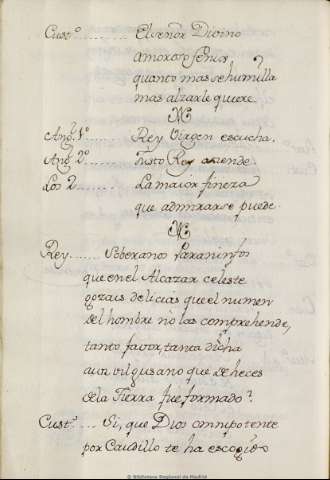 Cust.o ........ El señor Divino
amoroso fenix
quanto mas se humilla
mas alzarle quiere.
Ang.l 1.o ....... Rey Virgen escucha.
Ang.l 2.o ....... Justo Rey atiende
Los 2 ........ La maior fineza
que admirarse puede
Rey ...... Soberanos Paraninfos
que en el Alcazar celeste
gozais delicias que el numen
del hombre no las comprehende,
tanto favor, tanta dicha
a un vil gusano que de heces
de la Tierra fue formado?
Cust.o .... Si, que Dios omnipotente
por Caudillo te ha escogido
© Biblioteca Regional de Madrid